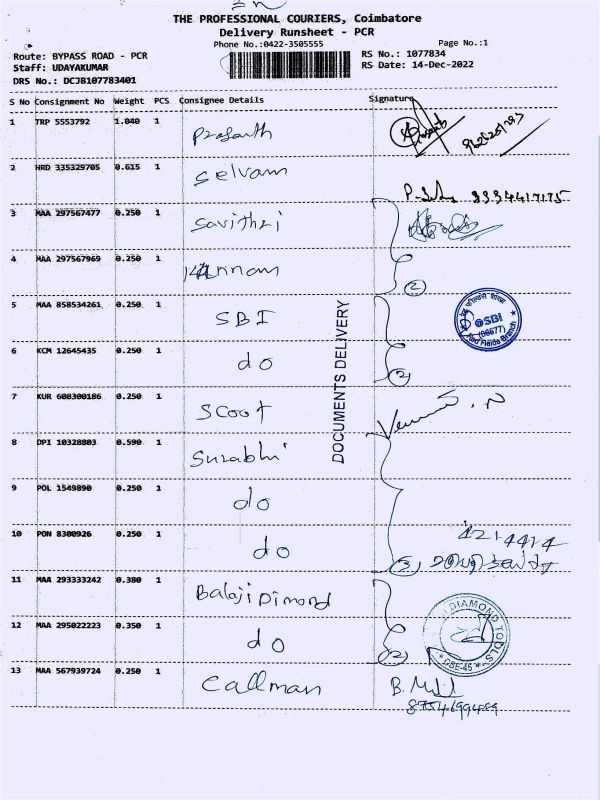 THE PROFESSIONAL COURIERS, Coimbatore
Delivery Runsheet - PCR
Phone No.:0422-3505555
Page No.:1
Route: BYPASS ROAD - PCR
Staff: UDAYAKUMAR
DRS No.: DCJB107783401
RS No.: 1077834
RS Date: 14-Dec-2022
S No Consignment No Weight PCS Consignee Details Signature
1 TRP 5553792 1.040 1 Prasanth
2 HRD 335329705 0.615 1 Selvam
3 MAA 297567477 0.250 1 Savithri
4 MAA 297567969 0.250 1 Kannan
2
5 MAA 858534261 0.250 1 SBI
6 KCM 12645435 0.250 1 do
2
SBI
(06677)
7 KUR 608300186 0.250 1 Scoot
8 DPI 10328803 0.590 1 Surabhi
9 POL 1549890 0.250 1 do
10 PON 8300926 0.250 1 do
3
4214414
11 MAA 293333242 0.380 1 Balaji Dimond
12 MAA 295022223 0.350 1 do
2
DIAMOND TOOLS
CBE-45
13 MAA 567939724 0.250 1 Callman
DOCUMENTS DELIVERY